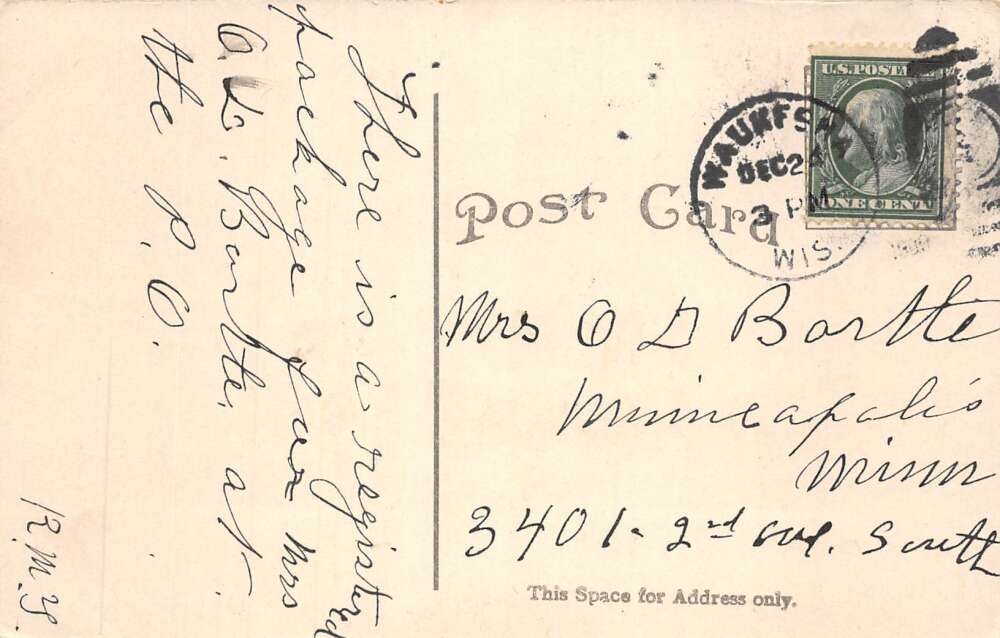 There is a registered
package for Mrs
O. D. Bartte, at
the P. O.
R. M. S.
Post Card
WAUKESHA
DEC 24
3 PM
WIS.
U.S. POSTAGE
ONE CENT
Mrs O D Bartte
Minneapolis
Minn
3401 - 2nd ave. South
This Space for Address only.